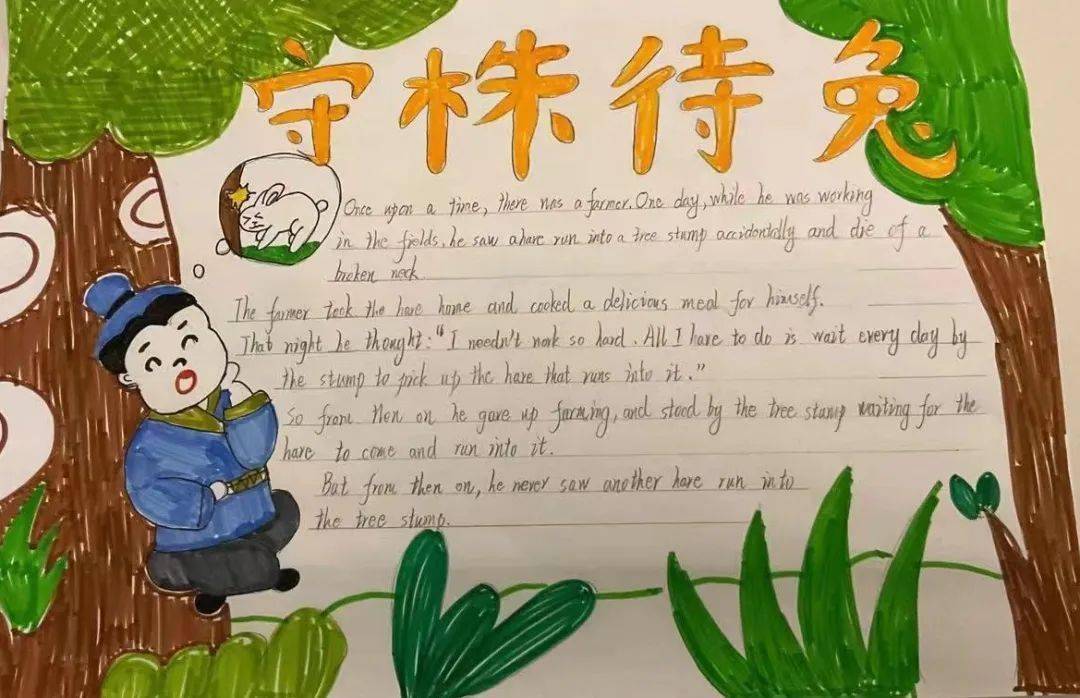 守株待兔
Once upon a time, there was a farmer. One day, while he was working
in the fields, he saw a hare run into a tree stump accidentally and die of a
broken neck
The farmer took the hare home and cooked a delicious meal for himself.
That night he thought: "I needn't work so hard. All I have to do is wait every day by
the stump to pick up the hare that runs into it."
So from then on he gave up farming, and stood by the tree stump waiting for the
hare to come and run into it.
But from then on, he never saw another hare run into
the tree stump.